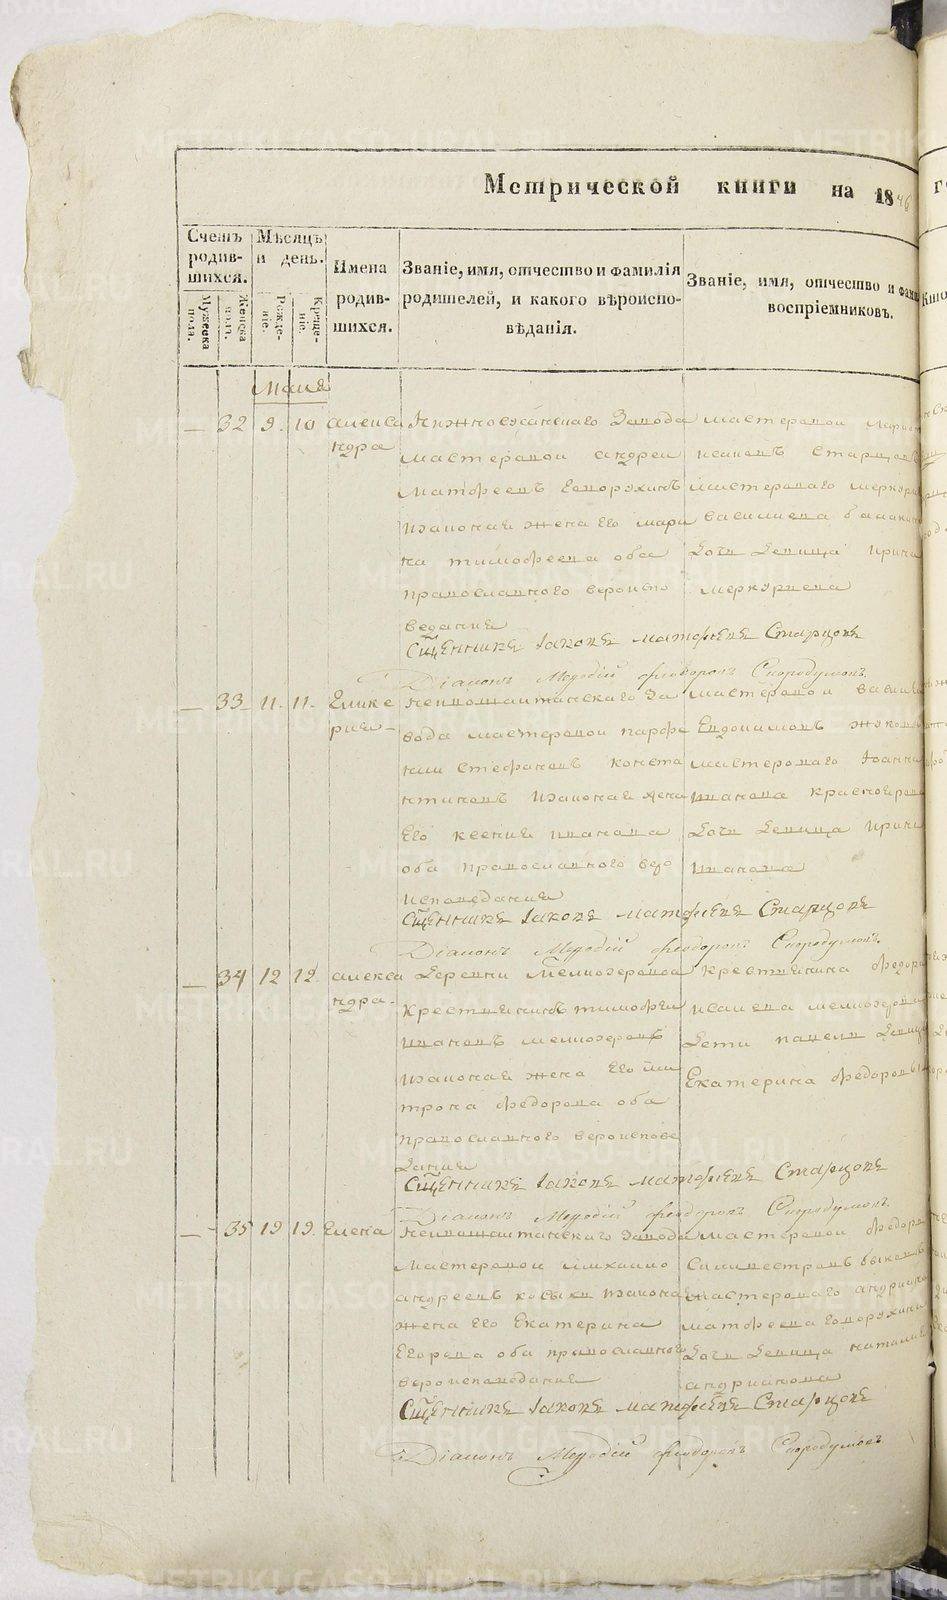 Метрической книги на 1846
Счетъ родив-шихся.
Мужеска пола.
Женска пола.
Мѣсяцъ и день.
Рожде-ніе.
Креще-ніе.
Имена родив-шихся.
Званіе, имя, отчество и фамилія родителей, и какого вѣроиспо-вѣданія.
Званіе, имя, отчество и фами
воспріемниковъ.
Маия
— 32 9. 10 алекса
ндра
завода
мастеровой андреи
матфеевъ
законная жена его мари
на тимофеева оба
православного вероиспо
ведания
мастеровой
исаковъ Старцовъ
мастероваго меркурия
василиева
дочь девица ирина
меркуриева
Сщенникъ Iаковъ матфѣевъ Старцовъ
Дiаконъ Меѳодiй Ѳеодоровъ Скородумовъ.
— 33 11. 11. Глике
рия
Нейвошайтанскаго за
вода мастеровой парфе
нии Стефановъ конста
нтиновъ законная жена
Его ксения иванова
оба православного веро
исповедания
мастеровой василии
Евдокимовъ
мастероваго Iоанна
иванова
дочь девица ирина
иванова
Сщенникъ Iаковъ матфѣевъ Старцовъ
Дiаконъ Меѳодiй Ѳеодоровъ Скородумовъ.
— 34 12 12. алекса
ндра.
Деревни мелкозеровои
крестьянинъ тимофеи
ивановъ мелкозеровъ
законная жена Его ми
трона федорова оба
православного вероиспове
дания
крестьянина федора
исакова мелкозерова
дети павелъ девица
Екатерина федоровы
Сщенникъ Iаковъ матфѣевъ Старцовъ
Дiаконъ Меѳодiй Ѳеодоровъ Скородумовъ.
— 35 19 19. Елена
Нейвошайтанскаго завода
мастеровой михаило
андреевъ косыхъ законна
жена его Екатерина
Егорова оба православного
вероисповедания
мастеровой федоръ
Силиверстовъ быковъ
мастероваго андриана
матфеева
дочь девица наталия
андрианова
Сщенникъ Iаковъ матфѣевъ Старцовъ
Дiаконъ Меѳодiй Ѳеодоровъ Скородумовъ
METRIKI.GASO-URAL.RU